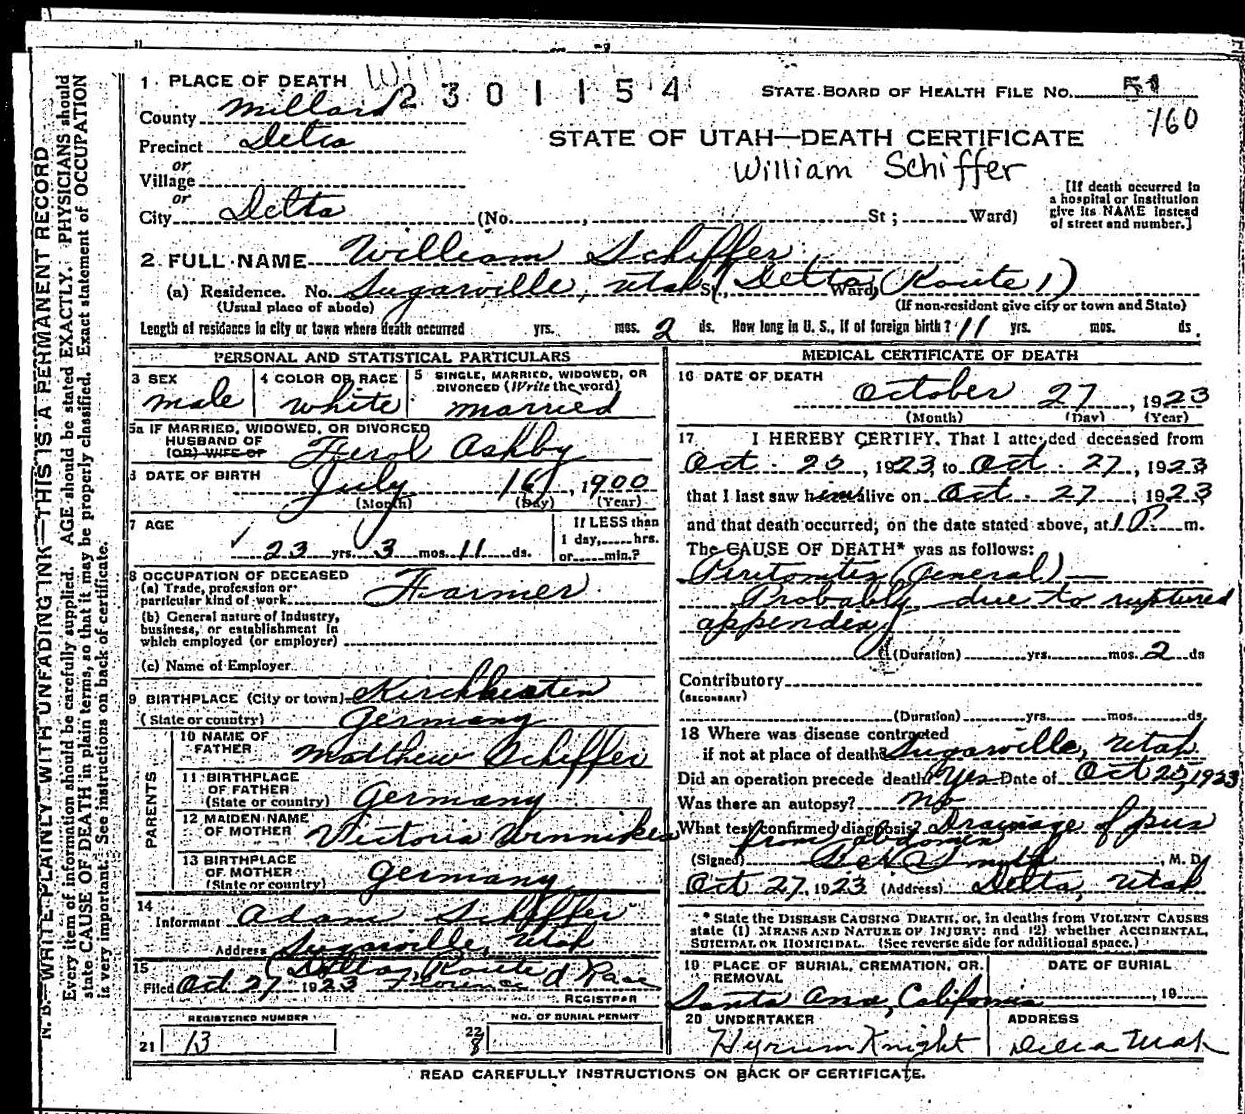 N. B.—WRITE PLAINLY WITH UNFADING INK—THIS IS A PERMANENT RECORD
Every item of information should be carefully supplied. AGE should be stated EXACTLY. PHYSICIANS should
state CAUSE OF DEATH in plain terms, so that it may be properly classified. Exact statement of OCCUPATION
is very important. See instructions on back of certificate.
1 PLACE OF DEATH Will 2301154 STATE BOARD OF HEALTH FILE NO. 51
160
County Millard
Precinct Delta
STATE OF UTAH—DEATH CERTIFICATE
or
Village
William Schiffer
or
City Delta (No. , St ; Ward)
[If death occurred in
a hospital or institution
give its NAME instead
of street and number.]
2 FULL NAME William Schiffer
(a) Residence. No. Sugarville, Utah St., Delta Ward, (Route 1)
(Usual place of abode) (If non-resident give city or town and State)
Length of residence in city or town where death occurred yrs. mos. 2 ds. How long in U. S., if of foreign birth? 11 yrs. mos. ds.
PERSONAL AND STATISTICAL PARTICULARS
3 SEX male
4 COLOR OR RACE White
5 SINGLE, MARRIED, WIDOWED, OR
DIVORCED (Write the word)
married
5a IF MARRIED, WIDOWED, OR DIVORCED
HUSBAND OF
(OR) WIFE OF Ferol Ashby
6 DATE OF BIRTH July 16, 1900
(Month) (Day) (Year)
7 AGE
23 yrs. 3 mos. 11 ds.
If LESS than
1 day, hrs.
or min.?
8 OCCUPATION OF DECEASED
(a) Trade, profession or
particular kind of work Farmer
(b) General nature of industry,
business, or establishment in
which employed (or employer)
(c) Name of Employer
9 BIRTHPLACE (City or town)
(State or country) Germany
PARENTS
10 NAME OF
FATHER Matthew Schiffer
11 BIRTHPLACE
OF FATHER
(State or country) Germany
12 MAIDEN NAME
OF MOTHER Victoria
13 BIRTHPLACE
OF MOTHER
(State or country) Germany
14
Informant Adam Schiffer
Address Sugarville, Utah
Delta, Route
15
Filed Oct 27 1923 Florence d Pace
REGISTRAR
REGISTERED NUMBER
21 13
22
8
NO. OF BURIAL PERMIT
MEDICAL CERTIFICATE OF DEATH
16 DATE OF DEATH
October 27, 1923
(Month) (Day) (Year)
17 I HEREBY CERTIFY, That I attended deceased from
Oct. 25, 1923, to Oct. 27, 1923
that I last saw him alive on Oct. 27, 1923
and that death occurred, on the date stated above, at 1 P. m.
The CAUSE OF DEATH* was as follows:
Peritonitis (General)—
Probably due to ruptured
appendix
(Duration) yrs. mos. 2 ds
Contributory
(SECONDARY)
(Duration) yrs. mos. ds.
18 Where was disease contracted
if not at place of death? Sugarville, Utah
Did an operation precede death? Yes Date of Oct 25, 1923
Was there an autopsy? no
What test confirmed diagnosis? Drainage of pus
from abdomen
(Signed) Smith, M. D.
Oct 27, 1923 (Address) Delta, Utah
* State the DISEASE CAUSING DEATH, or, in deaths from VIOLENT CAUSES
state (1) MEANS AND NATURE OF INJURY; and (2) whether ACCIDENTAL,
SUICIDAL OR HOMICIDAL. (See reverse side for additional space.)
19 PLACE OF BURIAL, CREMATION, OR
REMOVAL
Santa Ana, California
DATE OF BURIAL
, 19
20 UNDERTAKER
Hyrum Knight
ADDRESS
Delta Utah
READ CAREFULLY INSTRUCTIONS ON BACK OF CERTIFICATE.